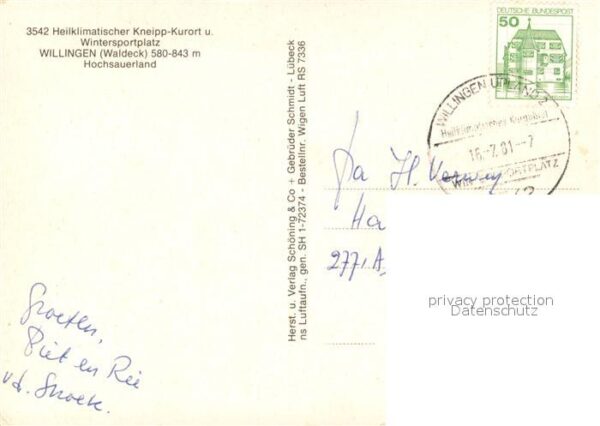 3542 Heilklimatischer Kneipp-Kurort u.
Wintersportplatz
WILLINGEN (Waldeck) 580-843 m
Hochsauerland
Herst. u. Verlag Schöning & Co + Gebrüder Schmidt - Lübeck
ns Luftaufn.. gen. SH 1-72374 - Bestellnr. Wigen Luft RS 7336
DEUTSCHE BUNDESPOST
50
WILLINGEN UPLAND 2
Heilklimatischer Kneippkurort
16.-7.81--7
WINTERSPORTPLATZ
Fa H.
Ha
2771 A
privacy protection
Datenschutz
Groeten,
Piet en Rie
v.d. Snoek.